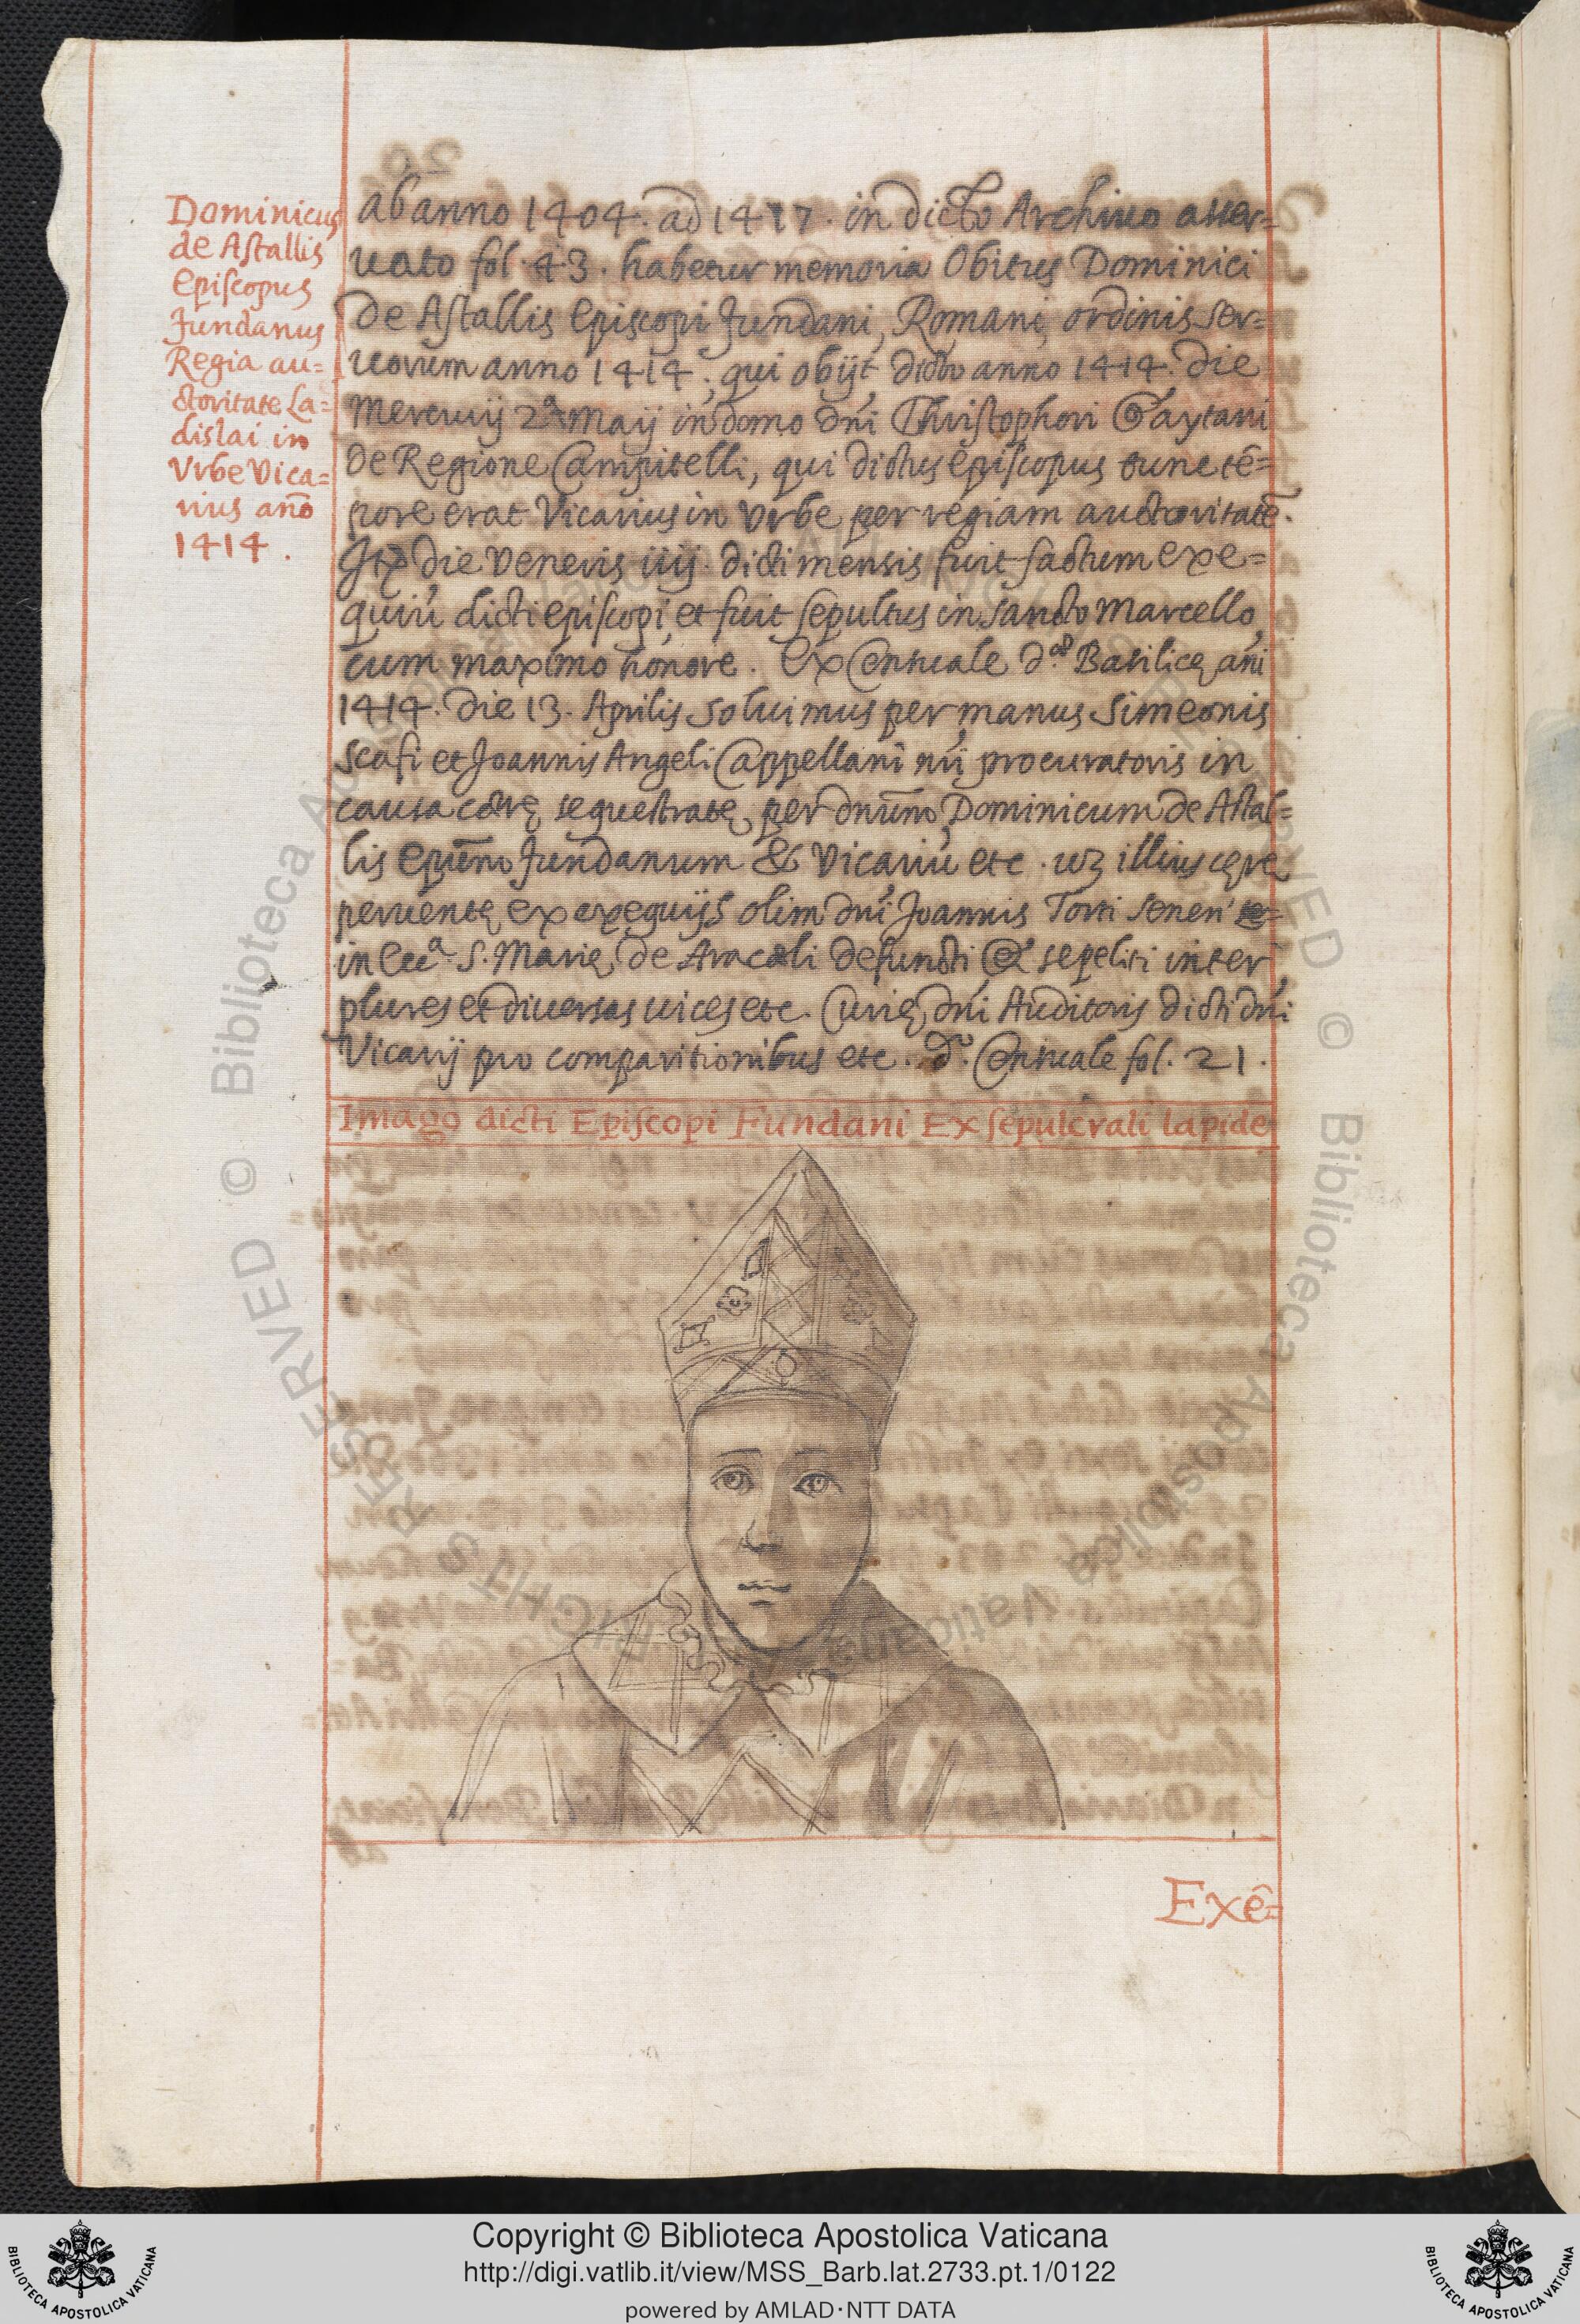 Dominicus
de Astallis
Episcopus
Fundanus
Regia au=
ctoritate La=
dislai in
Vrbe Vica=
rius año
1414.
ab anno 1404. ad 1417. in dicto Archiuo asser=
uato fol. 43. habetur memoria Obitus Dominici
de Astallis Episcopi Fundani, Romani ordinis ser=
uorum anno 1414, qui obijt dicto anno 1414. die
Mercurij 2ª Maij in domo dñi Christophori Gaytani
de Regione Campitelli, qui dictus episcopus tunc tê=
pore erat Vicarius in Vrbe per regiam auctoritatē.
die Veneris iiij. dicti mensis fuit factum exe=
quiũ dicti episcopi, et fuit sepultus in sancto Marcello
cum maximo honore. Ex Censuale Basilicę añi
1414. die 13. Aprilis soluimus per manus Simeonis
Scafi et Joannis Angeli Cappellani ñri procuratoris in
causa cerę sequestratę per Dominicum de Astal=
lis Fundanum & Vicariũ etc. uz illius cęre
peruentę ex exequijs olim dñi Joannis Torti
in Eccª S. Marię de Aracœli defuncti & sepeliti inter
plures et diuersas uices etc. Curię dñi Auditoris dicti dñi
Vicarij pro comparitionibus etc. dº. Censuale fol. 21.
Imago dicti Episcopi Fundani Ex sepulcrali lapide
Exê=
Copyright © Biblioteca Apostolica Vaticana
http://digi.vatlib.it/view/MSS_Barb.lat.2733.pt.1/0122
powered by AMLAD·NTT DATA
BIBLIOTECA APOSTOLICA VATICANA
BIBLIOTECA APOSTOLICA VATICANA